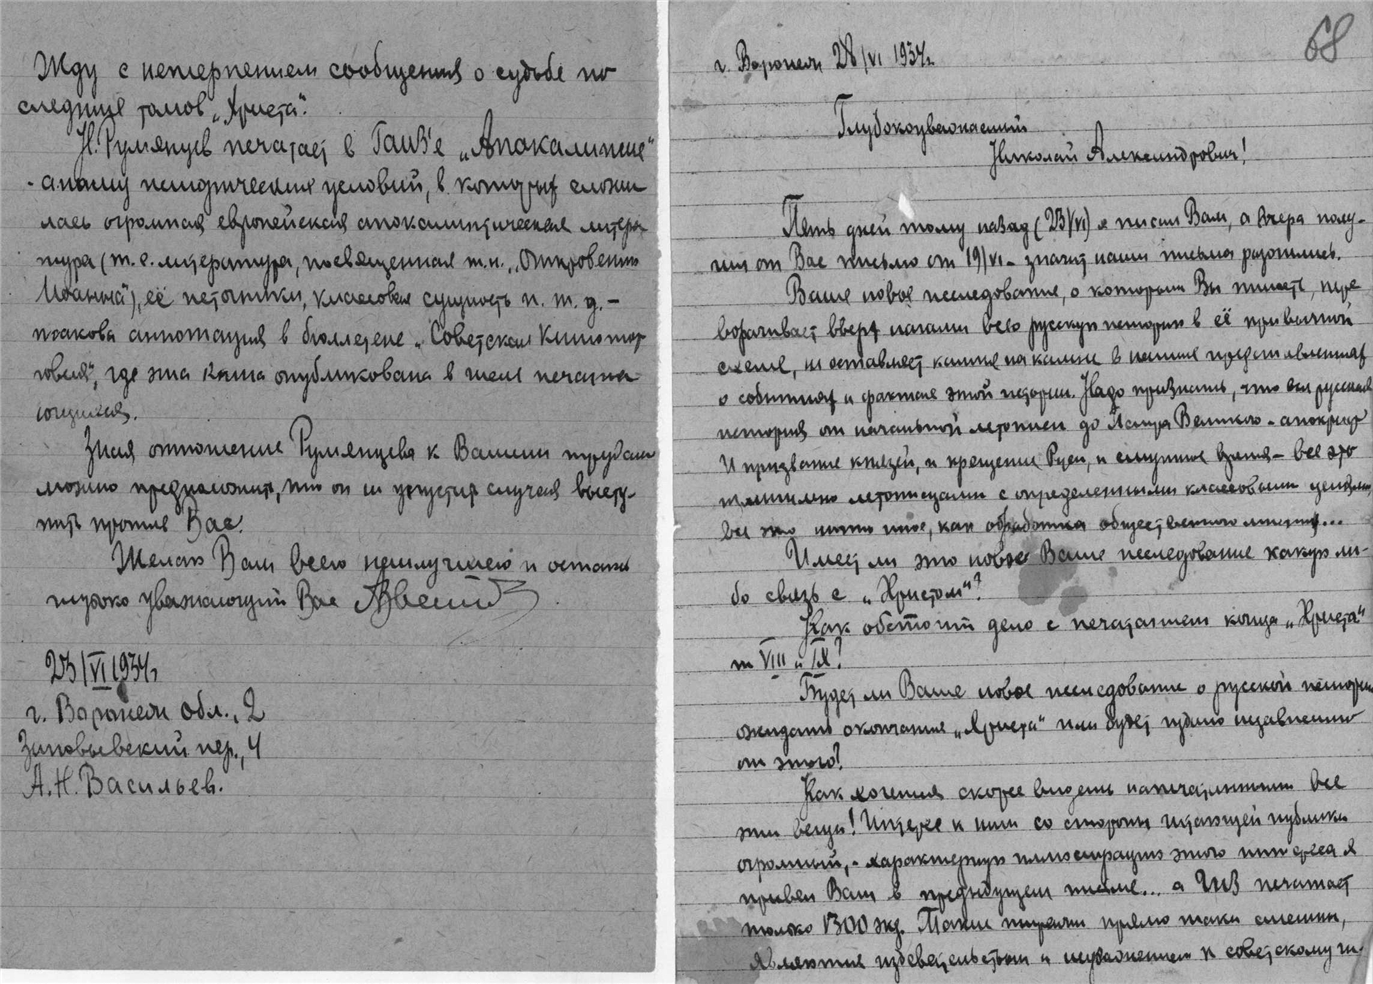 Жду с нетерпением сообщения о судьбе по
следних томов „Христа".
Н. Румянцев печатает в ГАИЗ'е „Апокалипсис"
- анализ исторических условий, в которых сложи
лась огромная европейская апокалиптическая литера
тура (т.е. литература, посвященная т.н. „Откровению
Иоанна"), её источники, классовая сущность и т.д. –
такова аннотация в бюллетене „Советская книготор
говля", где эта книга опубликована в числе печата
ющихся.
Зная отношение Румянцева к Вашим трудам
можно предположить, что он не упустит случая высту-
пить против Вас.
Желаю Вам всего наилучшего и остаюсь
глубоко уважающий Вас
23/VI 1934г
г. Воронеж обл., 2
Зиновьевский пер., 4
А.Н. Васильев.
68
г. Воронеж 28/VI 1934г.
Глубокоуважаемый
Николай Александрович!
Пять дней тому назад (23/VI) я писал Вам, а вчера полу-
чил от Вас письмо от 19/VI – значит наши письма разошлись.
Ваше новое исследование, о котором Вы пишете, пере
ворачивает вверх ногами всю русскую историю в её привычной
схеме, не оставляет камня на камне в наших представлениях
о событиях и фактах этой истории. Надо признать, что вся русская
история от начальной летописи до Петра Великого – апокриф
И призвание князей, и крещение Руси, и смутное время – все это
летописцами с определенными классовыми целями,
все это не что иное, как обработка общественного мнения...
Имеет ли это новое Ваше исследование какую ли-
бо связь с „Христом"?
Как обстоит дело с печатанием конца „Христа"
т VIII и IX?
Будет ли Ваше новое исследование о русской истории
ожидать окончания „Христа" или будет издано независимо
от этого?
Как хочется скорее видеть напечатанными все
эти вещи! Интерес к ним со стороны читающей публики
огромный, - характерную иллюстрацию этого интереса я
привел Вам в предыдущем письме... а ГИЗ печатает
только 1300 экз. Такие тиражи прямо таки смешны,
являются издевательством и неуважением к советскому чи-